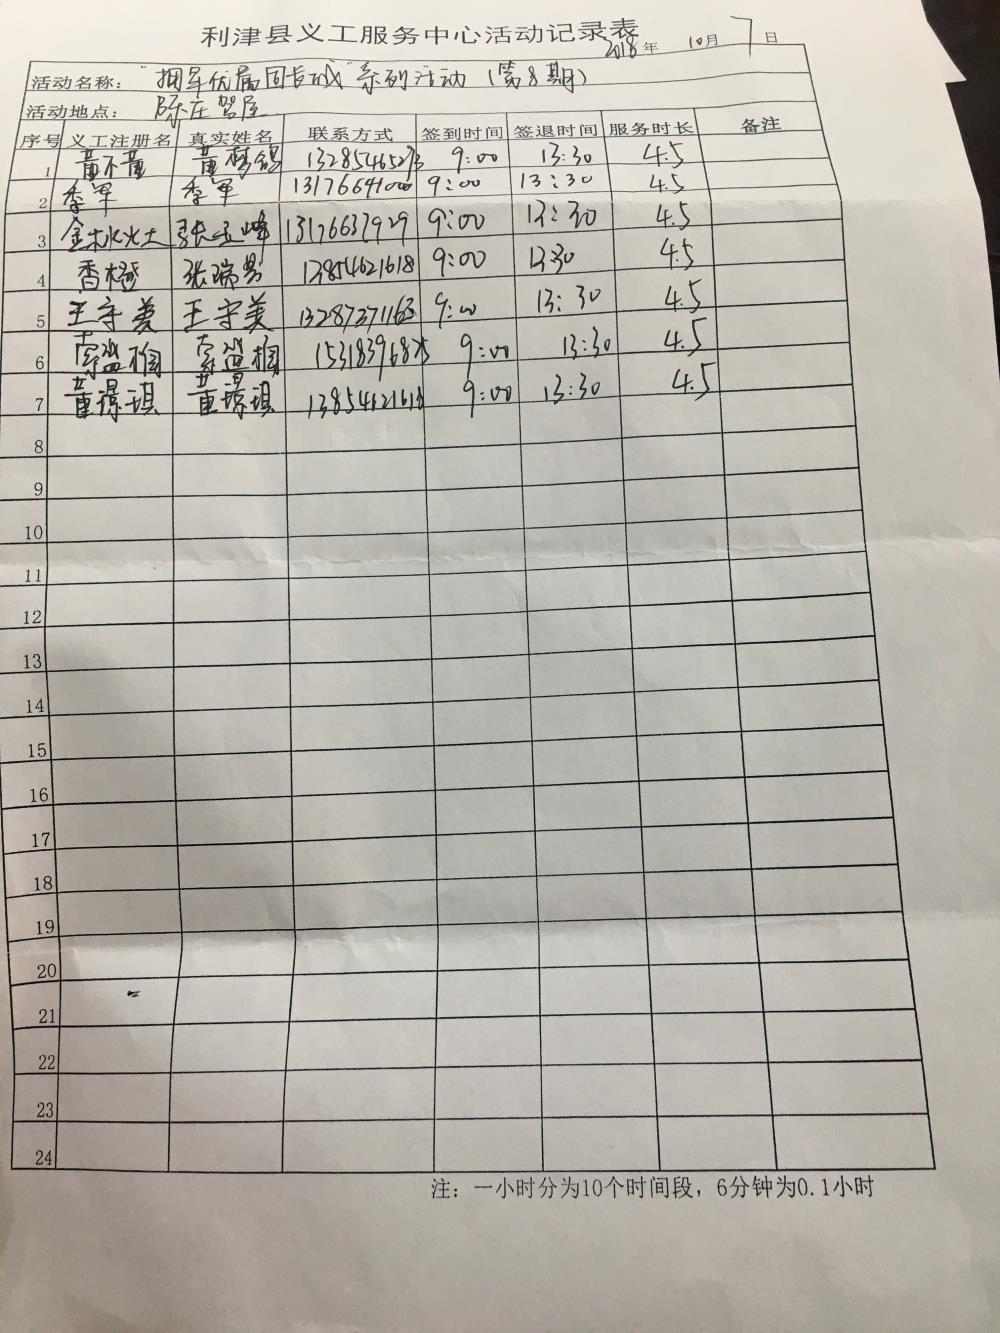 利津县义工服务中心活动记录表
2018年 10月 7日
活动名称："拥军优属固长城"系列活动（第8期）
活动地点：陈庄 贺屋
序号 义工注册名 真实姓名 联系方式 签到时间 签退时间 服务时长 备注
1 董不董 董梦鸽 9:00 13:30 4.5
2 季军 季军 13176641000 9:00 13:30 4.5
3 金木水火土 张玉峰 13176637929 9:00 13:30 4.5
4 香橙 张瑞男 13854621618 9:00 13:30 4.5
5 王守美 王守美 13287371163 9:00 13:30 4.5
6 9:00 13:30 4.5
7 董璟琪 董璟琪 13854621618 9:00 13:30 4.5
8
9
10
11
12
13
14
15
16
17
18
19
20
21
22
23
24
注：一小时分为10个时间段，6分钟为0.1小时